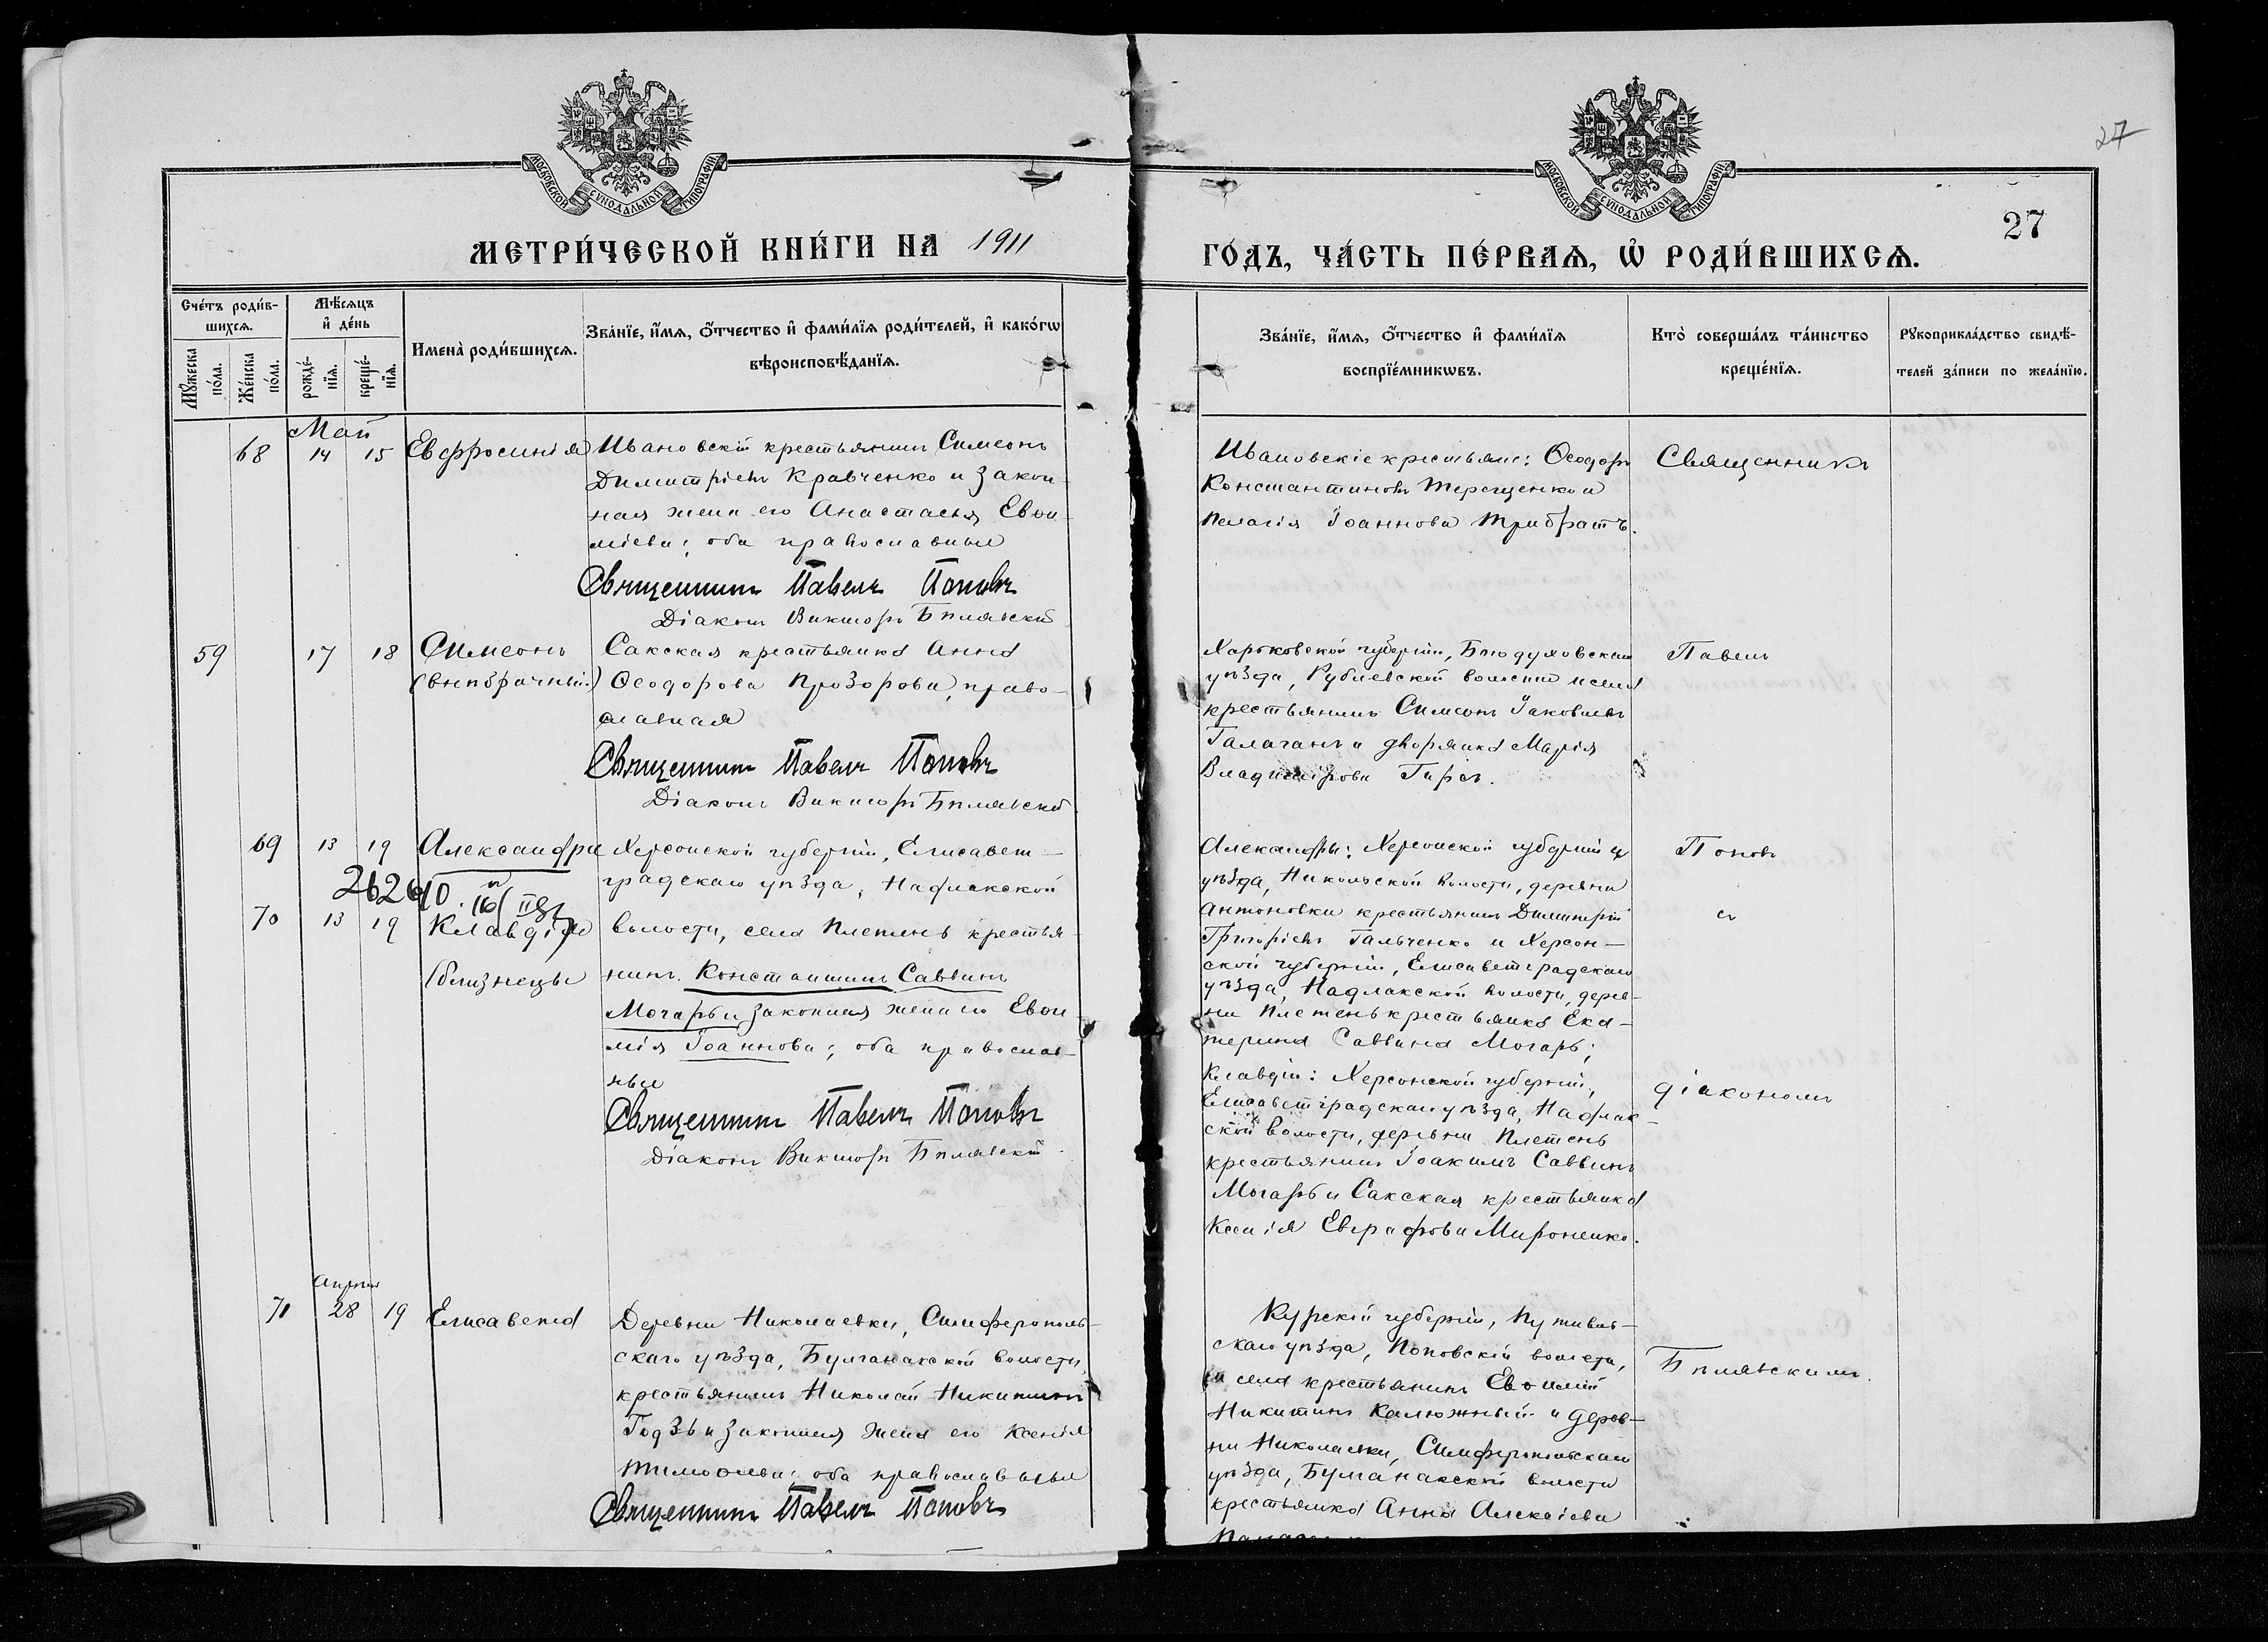 27
МОСКОВСКОЙ СѴНОДАЛЬНОЙ ТИПОГРАФІИ
МОСКОВСКОЙ СѴНОДАЛЬНОЙ ТИПОГРАФІИ
27
МЕТРИ́ЧЕСКОЙ КНИ́ГИ НА 1911
ГО́ДЪ, ЧА́СТЬ ПЕ́РВАѦ, Ѡ҆ РОДИ́ВШИХСѦ.
Сче́тъ роди́в-
шихсѧ.
Мꙋ́жеска по́ла.
Же́нска по́ла.
Мѣ́сѧцъ
и҆ де́нь
рожде́-
нїѧ.
креще́-
нїѧ.
Имена̀ роди́вшихсѧ.
Зва́нїе, и҆́мѧ, ѻ҆́тчество и҆ фами́лїѧ роди́телей, и҆ како́гѡ
вѣроисповѣ́данїѧ.
Зва́нїе, и҆́мѧ, ѻ҆́тчество и҆ фами́лїѧ
воспрїе́мникѡвъ.
Кто̀ соверша́лъ та́инство
креще́нїѧ.
Рꙋкоприкла́дство свидѣ́-
телей за́писи по жела́нїю.
Май
68 14 15 Евфросинія
Ивановскій крестьянинъ Симеонъ
Димитріевъ Кравченко и закон-
ная жена его Анастасія Евѳи-
міева; оба православные
Священникъ Павелъ Поповъ
Діаконъ Викторъ Бѣлявскій
Ивановскіе крестьяне: Ѳеодоръ
Константиновъ Терещенко и
Пелагія Іоаннова Трибратъ.
Священникъ
59 17 18 Симеонъ
(внѣбрачный)
Сакская крестьянка Анна
Ѳеодорова Прозорова, право-
славная
Священникъ Павелъ Поповъ
Діаконъ Викторъ Бѣлявскій
Харьковской губерніи, Богодуховскаго
уѣзда, Рублевской волости и села
крестьянинъ Симеонъ Іаковлевъ
Галаганъ и дворянка Марія
Владимірова Гирсъ.
Павелъ
69 13 19 Александра
и
70 13 19 Клавдія
(близнецы
Херсонской губерніи, Елисавет-
градскаго уѣзда, Надлакской
волости, села Плетень крестья-
нинъ Константинъ Саввинъ
Могарь и законная жена его Евѳи-
мія Іоаннова; оба православ-
ные
Священникъ Павелъ Поповъ
Діаконъ Викторъ Бѣлявскій
Александры: Херсонской губерніи и
уѣзда, Никольской волости, деревни
Антоновки крестьянинъ Димитрій
Григорьевъ Гальченко и Херсон-
ской губерніи, Елисаветградскаго
уѣзда, Надлакской волости, дерев-
ни Плетень крестьянка Ека-
терина Саввина Могарь;
Клавдіи: Херсонской губерніи,
Елисаветградскаго уѣзда, Надлак-
ской волости, деревни Плетень
крестьянинъ Іоакимъ Саввинъ
Могарь и Сакская крестьянка
Ксенія Евграфова Мироненко.
Поповъ
съ
діакономъ
апрѣля
71 28 19 Елисавета
Деревни Николаевки, Симферополь-
скаго уѣзда, Булганакской волости,
крестьянинъ Николай Никитинъ
Годзь и законная жена его Ксенія
Тимоѳеева; оба православные
Священникъ Павелъ Поповъ
Курской губерніи, Путивль-
скаго уѣзда, Поповской волости,
и села крестьянинъ Евѳимій
Никитинъ Калюжный и дерев-
ни Николаевки, Симферопольскаго
уѣзда, Булганакской волости
крестьянка Анна Алексіева
Бѣлявскимъ.